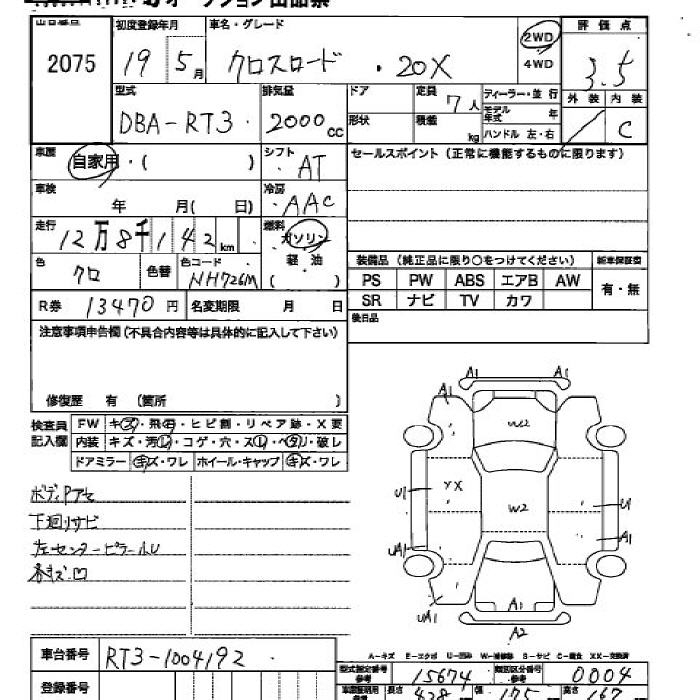 オークション出品票
出品番号 初度登録年月 車名・グレード 2WD 評価点
2075 19 5月 クロスロード ・20X 4WD 3.5
型式 排気量 ドア 定員 7人 ディーラー・並行 外装 内装
DBA-RT3 2000cc 形状 積載 kg モデル年式 年 C
ハンドル 左・右
車歴 自家用・( ) シフト AT セールスポイント(正常に機能するものに限ります)
車検 年 月( 日) 冷房 AAC
走行 12万8千142km 燃料 ガソリン
色 クロ 色替 色コード NH726M 軽油 ( ) 装備品(純正品に限り○をつけてください) 新車保証書
PS PW ABS エアB AW 有・無
R券 13470円 名変期限 月 日 SR ナビ TV カワ
注意事項申告欄(不具合内容等は具体的に記入して下さい) 後日品
修復歴 有 (箇所 )
検査員 FW キズ・飛石・ヒビ割・リペア跡・X要
記入欄 内装 キズ・汚レ・コゲ・穴・スレ・ヘタリ・破レ
ドアミラー キズ・ワレ ホイール・キャップ キズ・ワレ
A1 A1
W2
YX
U1 W2 U1
UA1 A1
UA1 A1
A2
ボディPアセ
下回リサビ
左センターピラールU
各キズ凹
A-キズ E-エクボ U-凹み W-補修跡 S-サビ C-腐食 XX-交換済
車台番号 RT3-1004192
型式指定番号 参考 15674 類別区分番号 参考 0004
登録番号 長さ 428 幅 175 高さ 167